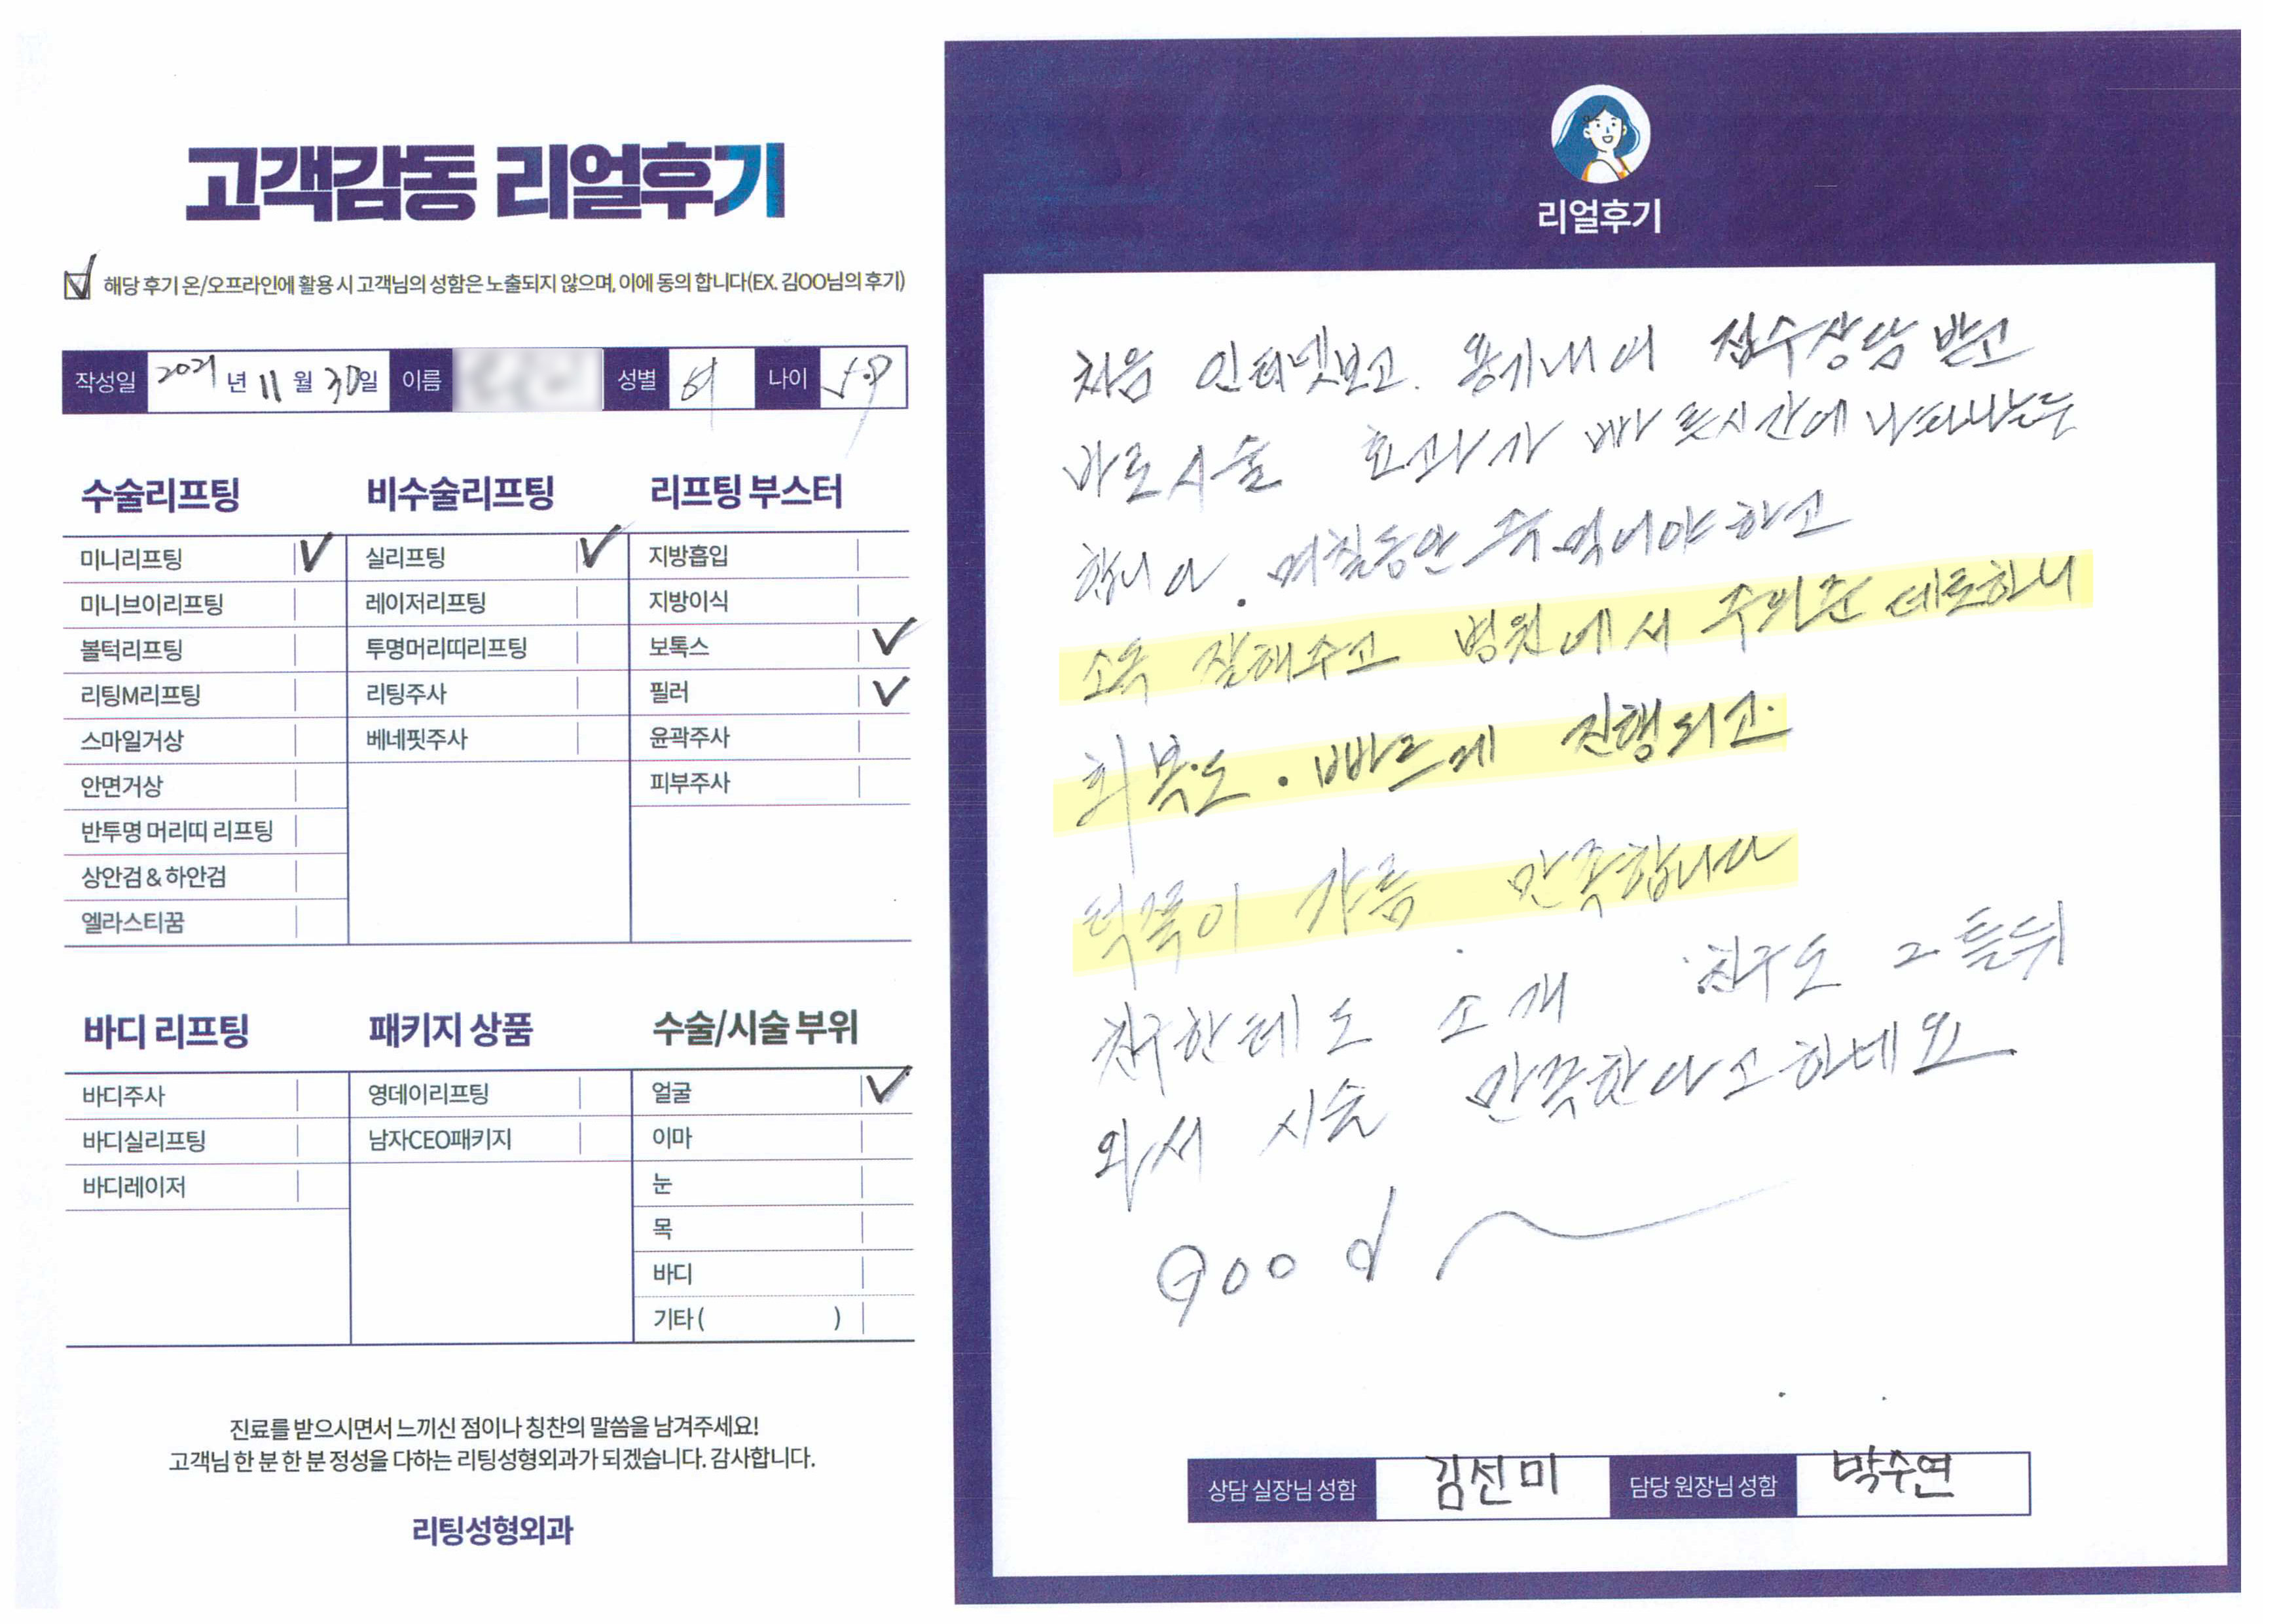 고객감동 리얼후기
해당 후기 온/오프라인에 활용 시 고객님의 성함은 노출되지 않으며, 이에 동의 합니다(EX. 김OO님의 후기)
작성일 2021 년 11 월 30일 이름 성별 여 나이
수술리프팅
미니리프팅
미니브이리프팅
볼턱리프팅
리팅M리프팅
스마일거상
안면거상
반투명 머리띠 리프팅
상안검 & 하안검
엘라스티꿈
비수술리프팅
실리프팅
레이저리프팅
투명머리띠리프팅
리팅주사
베네핏주사
리프팅 부스터
지방흡입
지방이식
보톡스
필러
윤곽주사
피부주사
바디 리프팅
바디주사
바디실리프팅
바디레이저
패키지 상품
영데이리프팅
남자CEO패키지
수술/시술 부위
얼굴
이마
눈
목
바디
기타 ( )
진료를 받으시면서 느끼신 점이나 칭찬의 말씀을 남겨주세요!
고객님 한 분 한 분 정성을 다하는 리팅성형외과가 되겠습니다. 감사합니다.
리팅성형외과
리얼후기
처음 인터넷보고. 용기내어 접수상담 받고
바로시술 효과가 빠른시간에 나타나는듯
합니다. 며칠동안 죽먹어야하고
소독 잘해주고 병원에서 주의준 데로하니
회복도. 빠르게 진행되고.
턱쪽이 갸름 만족합니다
친구한테도 소개 친구도 그 틀뒤
와서 시술 만족한다고하네요
good
상담 실장님 성함 김선미 담당 원장님 성함 박수연